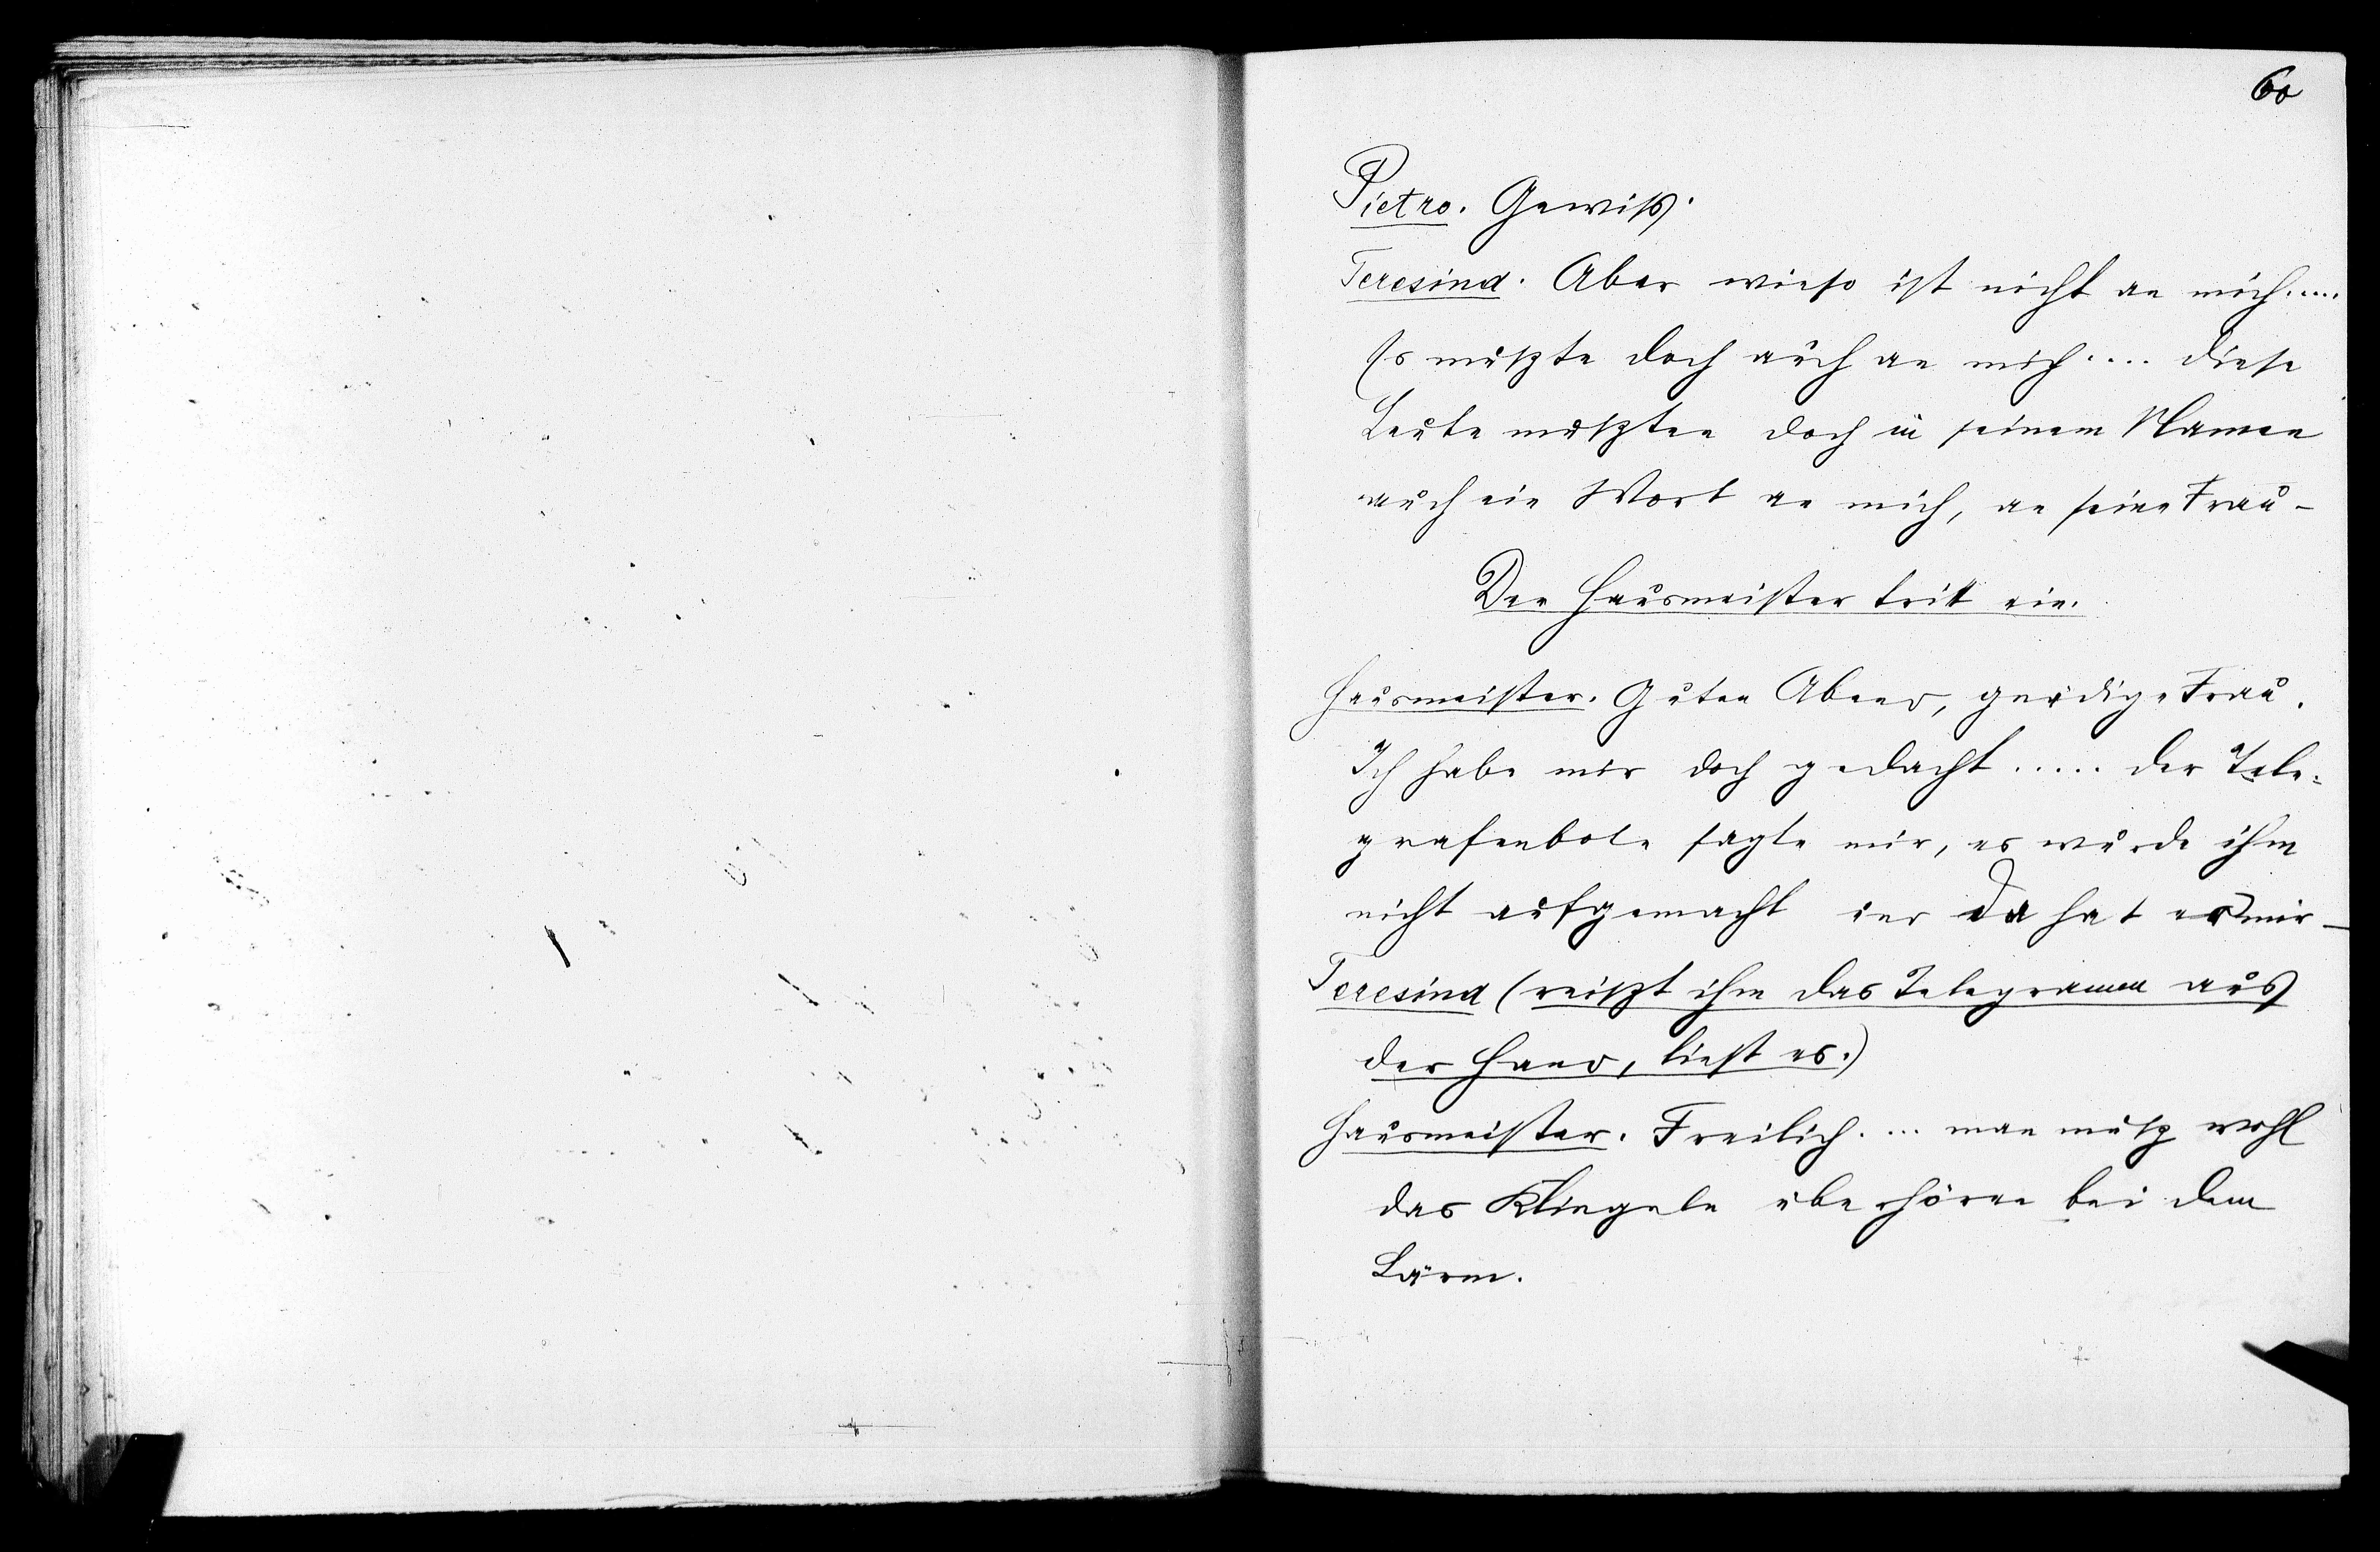 60
Pietro. Gewiß.
Teresina. Aber wieso ist nicht an mich....
Es mußte doch auch an mich.... diese
Leute mußten doch in seinem Namen
auch ein Wort an mich, an seine Frau –
Der Hausmeister tritt ein.
Hausmeister. Guten Abend, gnädige Frau.
Ich habe mir doch gedacht..... der Tele-
grafenbote sagte mir, es wurde ihm
nicht aufgemacht da hat er mir –
Teresina (reißt ihm das Telegramm aus
der Hand, liest es.)
Hausmeister. Freilich.... man muß wohl
das Klingeln überhören bei dem
Lärm.